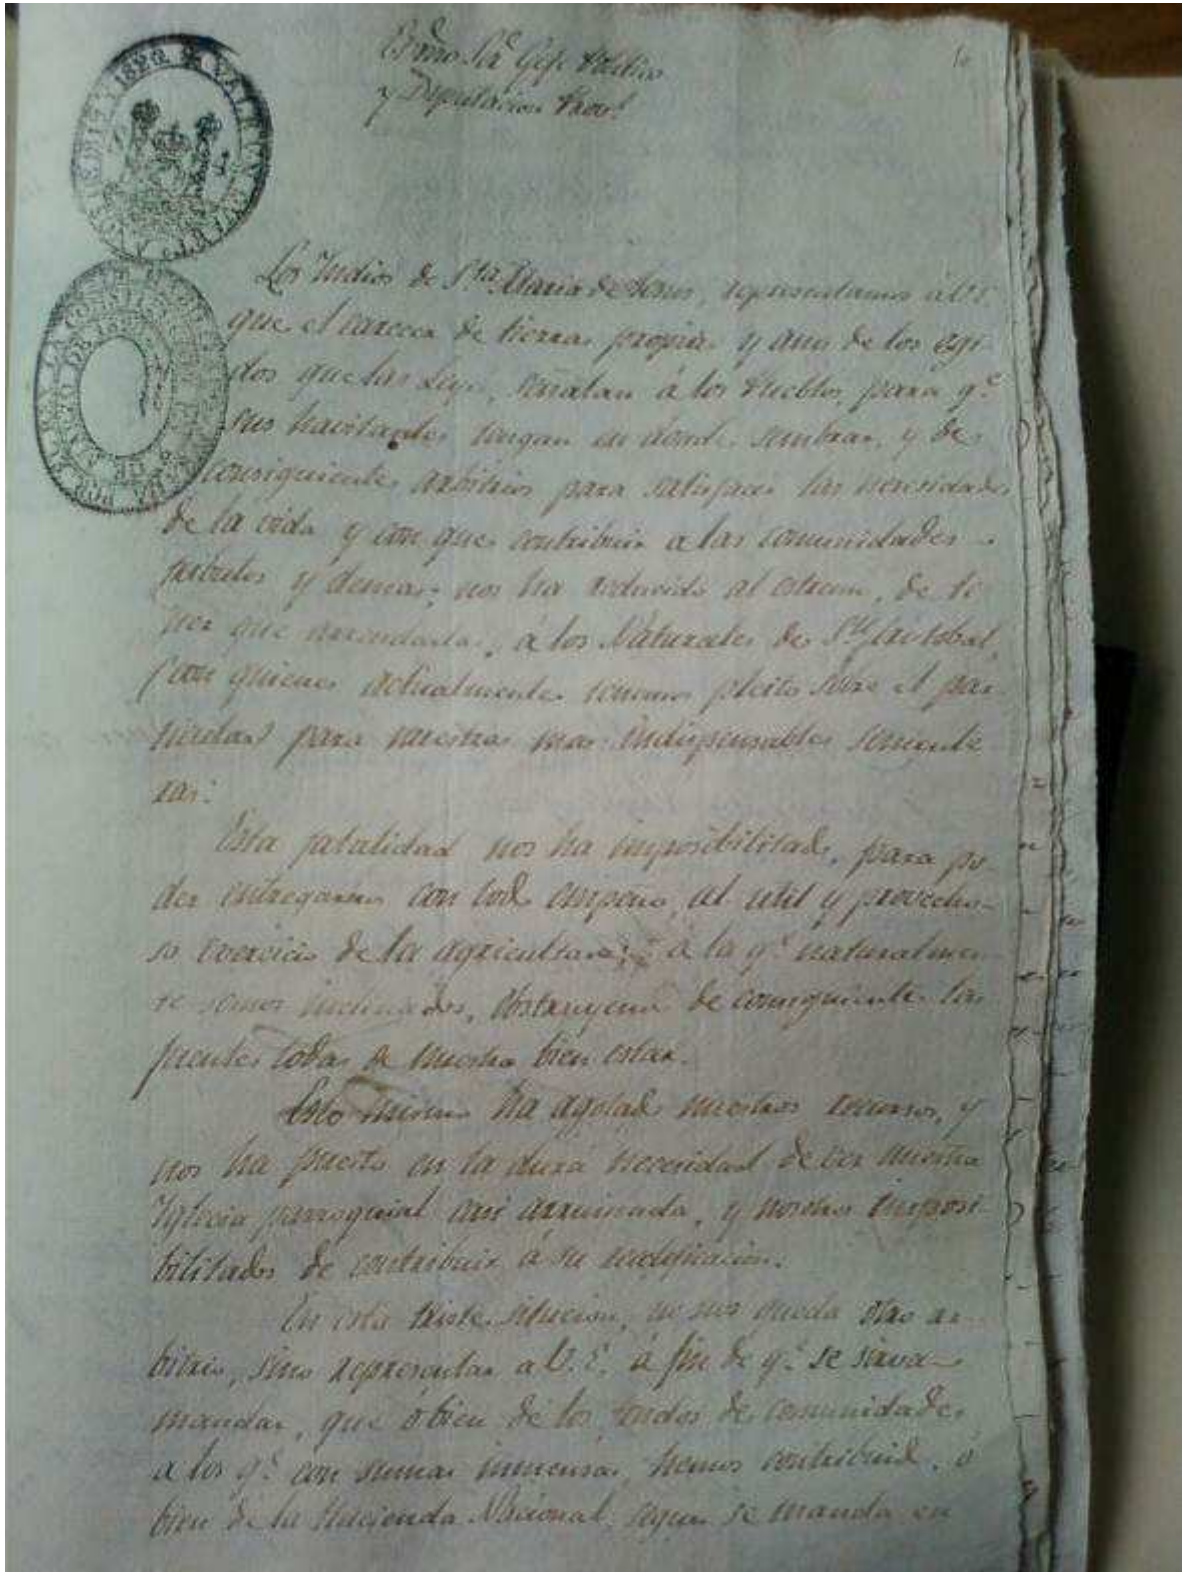 Exmo Sor. Gefe Politico
y Diputacion Provl.
Los Yndios de Sta. Maria de Jesus, representamos á V.E.
que el carecer de tierras propias y aun de los egi-
dos que las Leyes, señalan á los Pueblos, para q.e
sus havitantes tengan en donde sembrar, y de
consiguiente, arbitrios para satisfacer las necesidades
de la vida y con que contribuir a las comunidades
tributos y demas; nos ha reducido al estremo, de te
ner que arrendarlas, á los Naturales de Sn. Cristobal,
(con quienes actualmente tenemos pleito sobre el par-
ticular) para nuestras mas indispensables semente
ras.
Esta fatalidad nos ha imposibilitado, para po-
der entregarnos con todo empeño, al util y provecho-
so exercicio de la agricultura; á la q.e naturalmen-
te somos inclinados, obstruyendo de consiguiente las
fuentes todas de nuestro bien estar.
Esto mismo ha agotado nuestros recursos, y
nos ha puesto en la dura necesidad de ver nuestra
Yglecia parroquial casi arruinada, y nosotros imposi
bilitados de contribuir á su reedificacion.
En esta triste situcion, no nos queda otro ar-
bitrio, sino representar a V.E. á fin de q.e se sirva
mandar, que ó bien de los fondos de comunidades
a los q.e con sumas inmensas, hemos contribuido, ó
bien de la Hacienda Nacional, segun se manda en